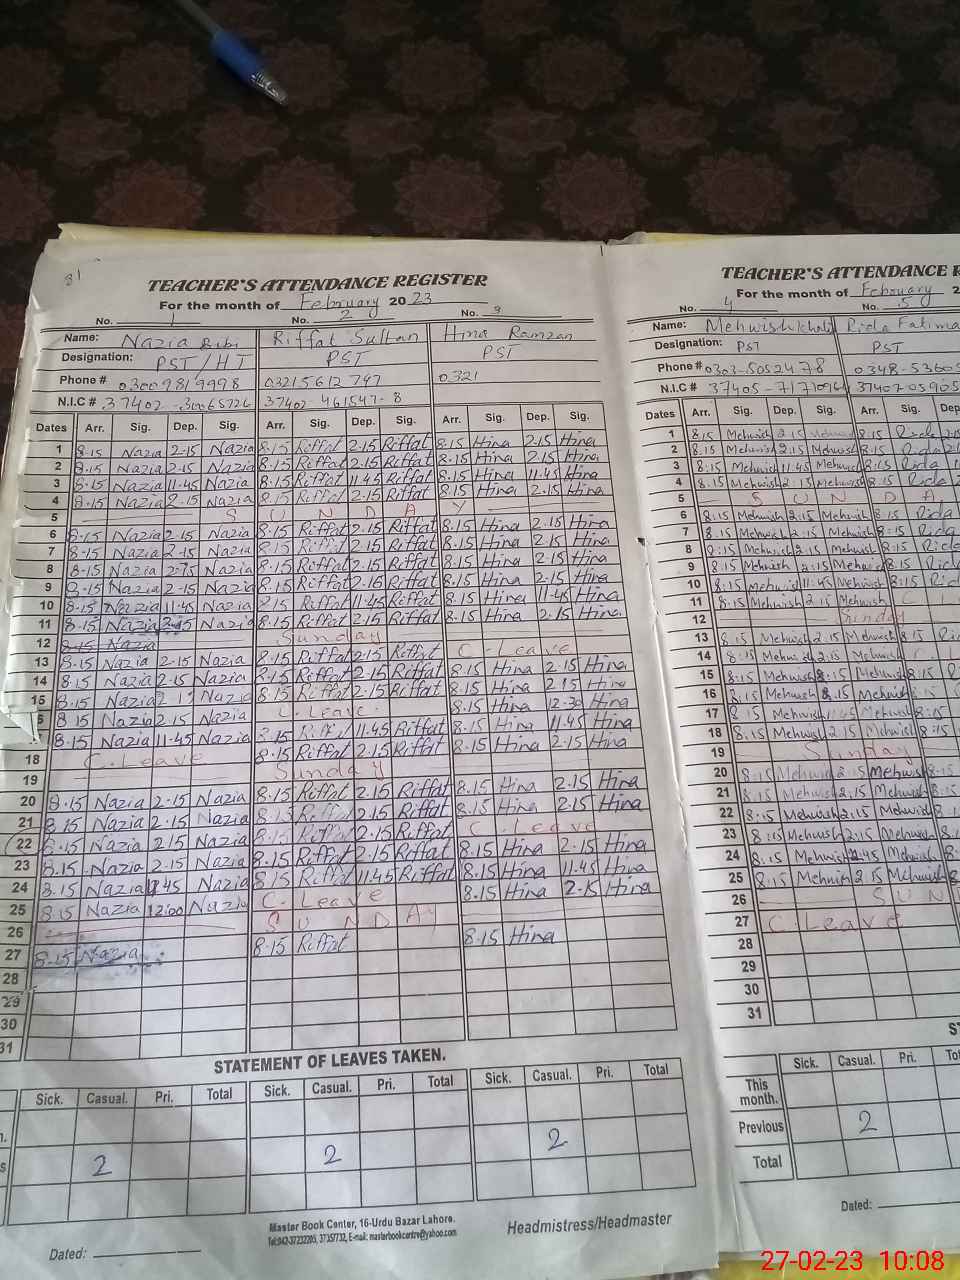 81
TEACHER'S ATTENDANCE REGISTER
For the month of February 2023
No. 1 No. 2 No. 3
Name: Nazia Bibi Riffat Sultan Hina Ramzan
Designation: PST/HT PST PST
Phone # 03009819998 03215612747 0321
N.I.C # 37402-461547-8
Dates Arr. Sig. Dep. Sig. Arr. Sig. Dep. Sig. Arr. Sig. Dep. Sig.
1 8.15 Nazia 2.15 Nazia 8.15 Riffat 2.15 Riffat 8.15 Hina 2.15 Hina
2 8.15 Nazia 2.15 Nazia 8.15 Riffat 2.15 Riffat 8.15 Hina 2.15 Hina
3 8.15 Nazia 11.45 Nazia 8.15 Riffat 11.45 Riffat 8.15 Hina 11.45 Hina
4 8.15 Nazia 2.15 Nazia 8.15 Riffat 2.15 Riffat 8.15 Hina 2.15 Hina
5 S U N D A Y
6 8.15 Nazia 2.15 Nazia 8.15 Riffat 2.15 Riffat 8.15 Hina 2.15 Hina
7 8.15 Nazia 2.15 Nazia 8.15 Riffat 2.15 Riffat 8.15 Hina 2.15 Hina
8 8.15 Nazia 2.15 Nazia 8.15 Riffat 2.15 Riffat 8.15 Hina 2.15 Hina
9 8.15 Nazia 2.15 Nazia 8.15 Riffat 2.15 Riffat 8.15 Hina 2.15 Hina
10 8.15 Nazia 11.45 Nazia Riffat 11.45 Riffat 8.15 Hina 11.45 Hina
11 8.15 Nazia 2.15 Nazia 8.15 Riffat 2.15 Riffat 8.15 Hina 2.15 Hina
12 8.15 Nazia Sunday
13 8.15 Nazia 2.15 Nazia 8.15 Riffat 2.15 Riffat C. Leave
14 8.15 Nazia 2.15 Nazia 8.15 Riffat 2.15 Riffat 8.15 Hina 2.15 Hina
15 8.15 Nazia Nazia 8.15 Riffat 2.15 Riffat 8.15 Hina 2.15 Hina
6 8.15 Nazia 2.15 Nazia C. Leave 8.15 Hina 12.30 Hina
8.15 Nazia 11.45 Nazia 8.15 Riffat 11.45 Riffat 8.15 Hina 11.45 Hina
18 C. Leave 8.15 Riffat 2.15 Riffat 8.15 Hina 2.15 Hina
19 Sunday
20 8.15 Nazia 2.15 Nazia 8.15 Riffat 2.15 Riffat 8.15 Hina 2.15 Hina
21 8.15 Nazia 2.15 Nazia 8.15 Riffat 2.15 Riffat 8.15 Hina 2.15 Hina
22 8.15 Nazia 2.15 Nazia 8.15 Riffat 2.15 Riffat C. Leave
23 8.15 Nazia 2.15 Nazia 8.15 Riffat 2.15 Riffat 8.15 Hina 2.15 Hina
24 8.15 Nazia 11.45 Nazia 8.15 Riffat 11.45 Riffat 8.15 Hina 11.45 Hina
25 8.15 Nazia 12:00 Nazia C. Leave 8.15 Hina 2.15 Hina
26 S U N D A Y
27 8.15 Nazia 8.15 Riffat 8.15 Hina
28
29
30
31
STATEMENT OF LEAVES TAKEN.
Sick. Casual. Pri. Total Sick. Casual. Pri. Total Sick. Casual. Pri. Total
2 2 2
Master Book Center, 16-Urdu Bazar Lahore.
Headmistress/Headmaster
Dated:
TEACHER'S ATTENDANCE
For the month of February 2
No. 4 No. 5
Name: Mehwish Khalid Rida Fatima
Designation: PST PST
Phone # 0303-5052478 0348-5360
N.I.C # 37405-7171096 37402-0590
Dates Arr. Sig. Dep. Sig. Arr. Sig. Dep
1 8.15 Mehwish 2.15 Mehwish 8.15 Rida 2
2 8.15 Mehwish 2.15 Mehwish 8.15 Rida
3 8:15 Mehwish 11.45 Mehwish 8:15 Rida
4 8.15 Mehwish 2.15 Mehwish 8.15 Rida
5 S U N D A
6 8.15 Mehwish 2:15 Mehwish 8.15 Rida
7 8.15 Mehwish 2:15 Mehwish 8:15 Rida
8 8:15 Mehwish 2.15 Mehwish 8:15 Rida
9 8.15 Mehwish 2:15 Mehwish 8.15 Rida
10 8:15 Mehwish 11.45 Mehwish 8:15 Rida
11 8.15 Mehwish 2.15 Mehwish
12 Sunday
13 8.15 Mehwish 2.15 Mehwish 8.15
14 8:15 Mehwish 2:15 Mehwish
15 8:15 Mehwish 8:15 Mehwish 8:15
16 8.15 Mehwish 8.15 Mehwish 8.15
17 8.15 Mehwish 11.45 Mehwish 8:15
18 8.15 Mehwish 2.15 Mehwish 8:15
19 Sunday
20 8.15 Mehwish 2.15 Mehwish 8.15
21 8.15 Mehwish 2.15 Mehwish 8.15
22 8:15 Mehwish 2.15 Mehwish
23 8.15 Mehwish 2.15 Mehwish 8.
24 8.15 Mehwish 2.45 Mehwish 8.
25 8.15 Mehwish 2.15 Mehwish 8.
26 S U N
27 C. Leave
28
29
30
31
Sick. Casual. Pri. To
This month.
Previous 2
Total
Dated:
27-02-23 10:08